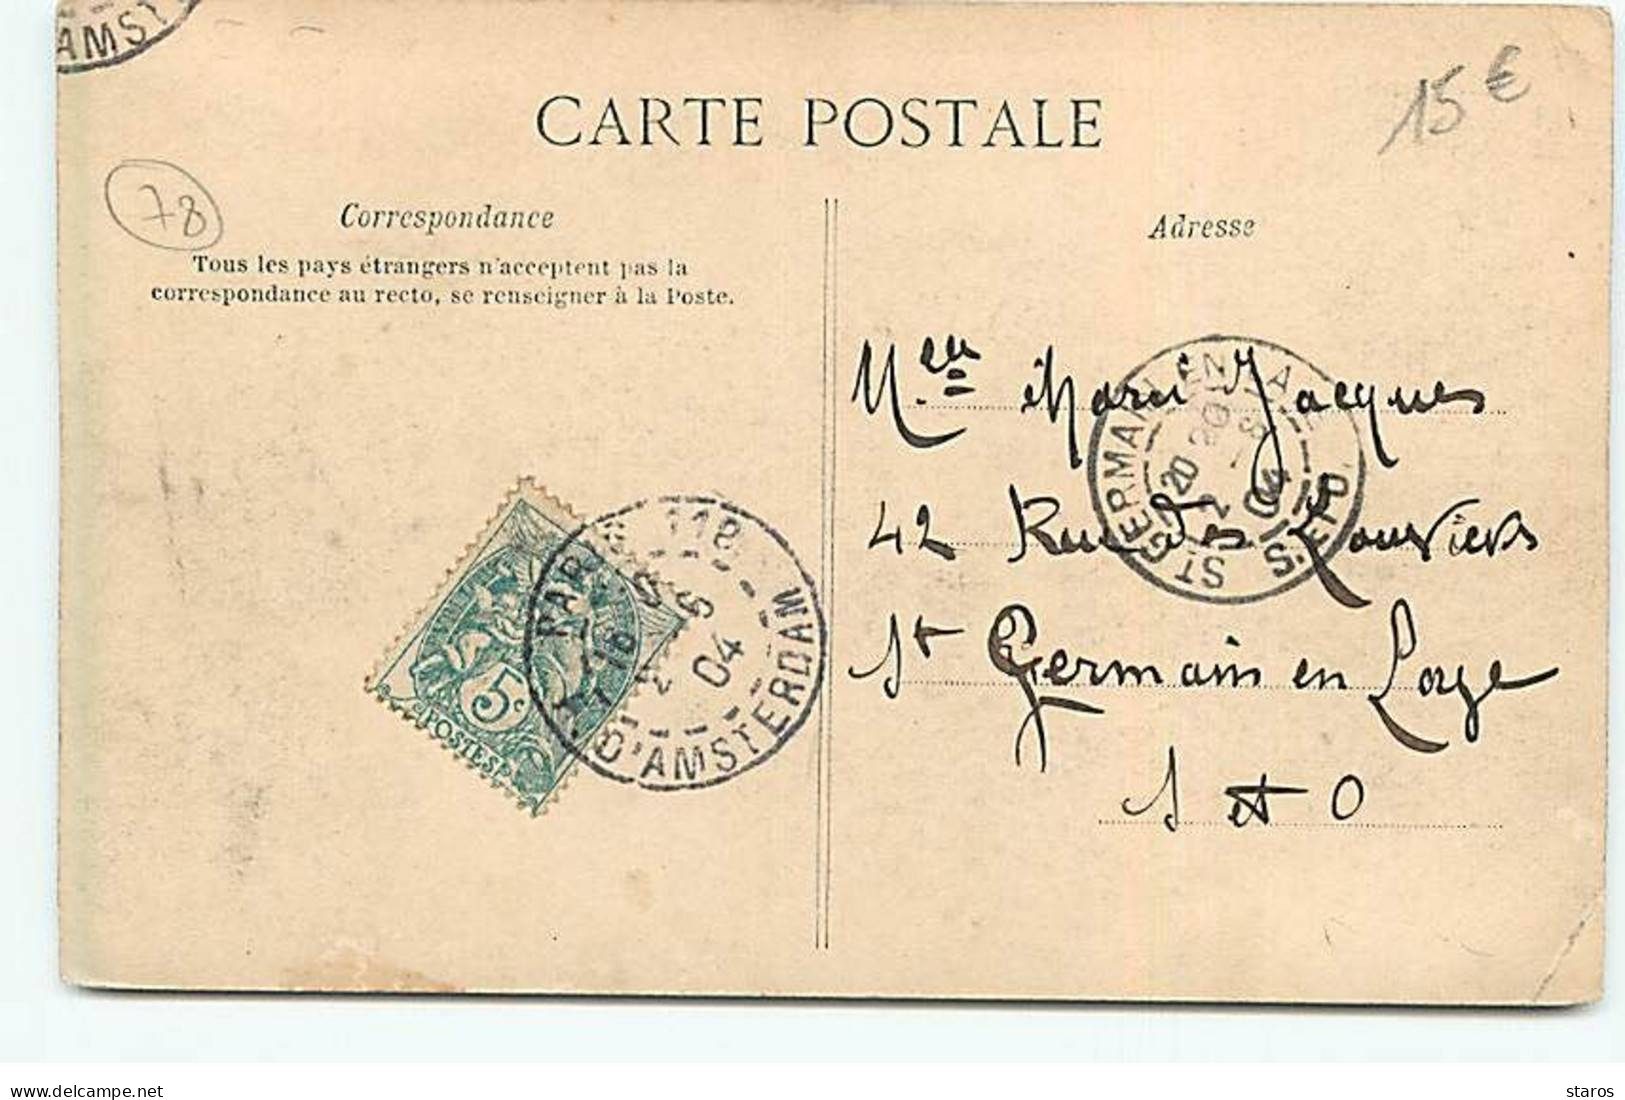 AMST
CARTE POSTALE
15 €
78
Correspondance
Tous les pays étrangers n'acceptent pas la
correspondance au recto, se renseigner à la Poste.
Adresse
Melle Marie Jacques
42 Rue des Louviers
St Germain en Laye
S et O
ST GERMAIN EN LAYE
S.ET O.
20
2
04
PARIS 118
R. D'AMSTERDAM
18
2
5
04
5c
POSTES
delcampe.net
staros